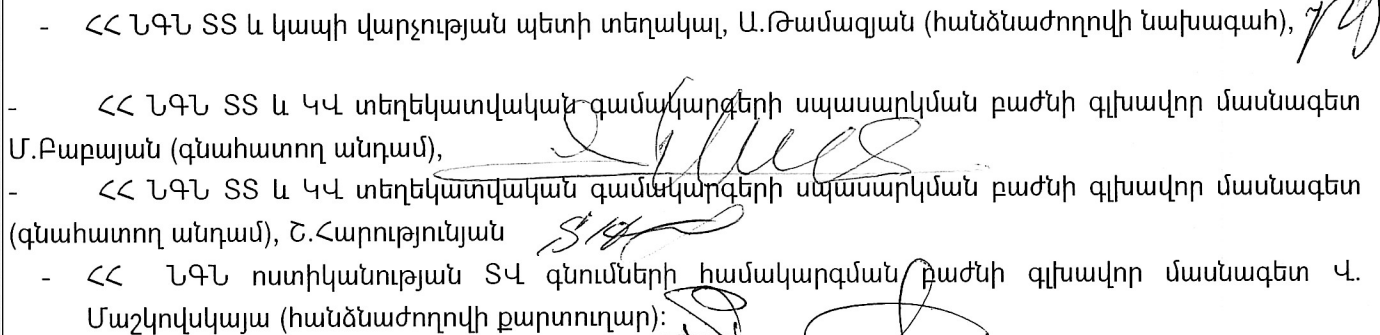 - ՀՀ ՆԳՆ ՏՏ և կապի վարչության պետի տեղակալ, Ա.Թամազյան (հանձնաժողովի նախագահ),
- ՀՀ ՆԳՆ ՏՏ և ԿՎ տեղեկատվական գամակարգերի սպասարկման բաժնի գլխավոր մասնագետ
Մ.Բաբայան (գնահատող անդամ),
- ՀՀ ՆԳՆ ՏՏ և ԿՎ տեղեկատվական գամակարգերի սպասարկման բաժնի գլխավոր մասնագետ
(գնահատող անդամ), Շ.Հարությունյան
- ՀՀ ՆԳՆ ոստիկանության ՏՎ գնումների համակարգման բաժնի գլխավոր մասնագետ Վ.
Մաշկովսկայա (հանձնաժողովի քարտուղար):